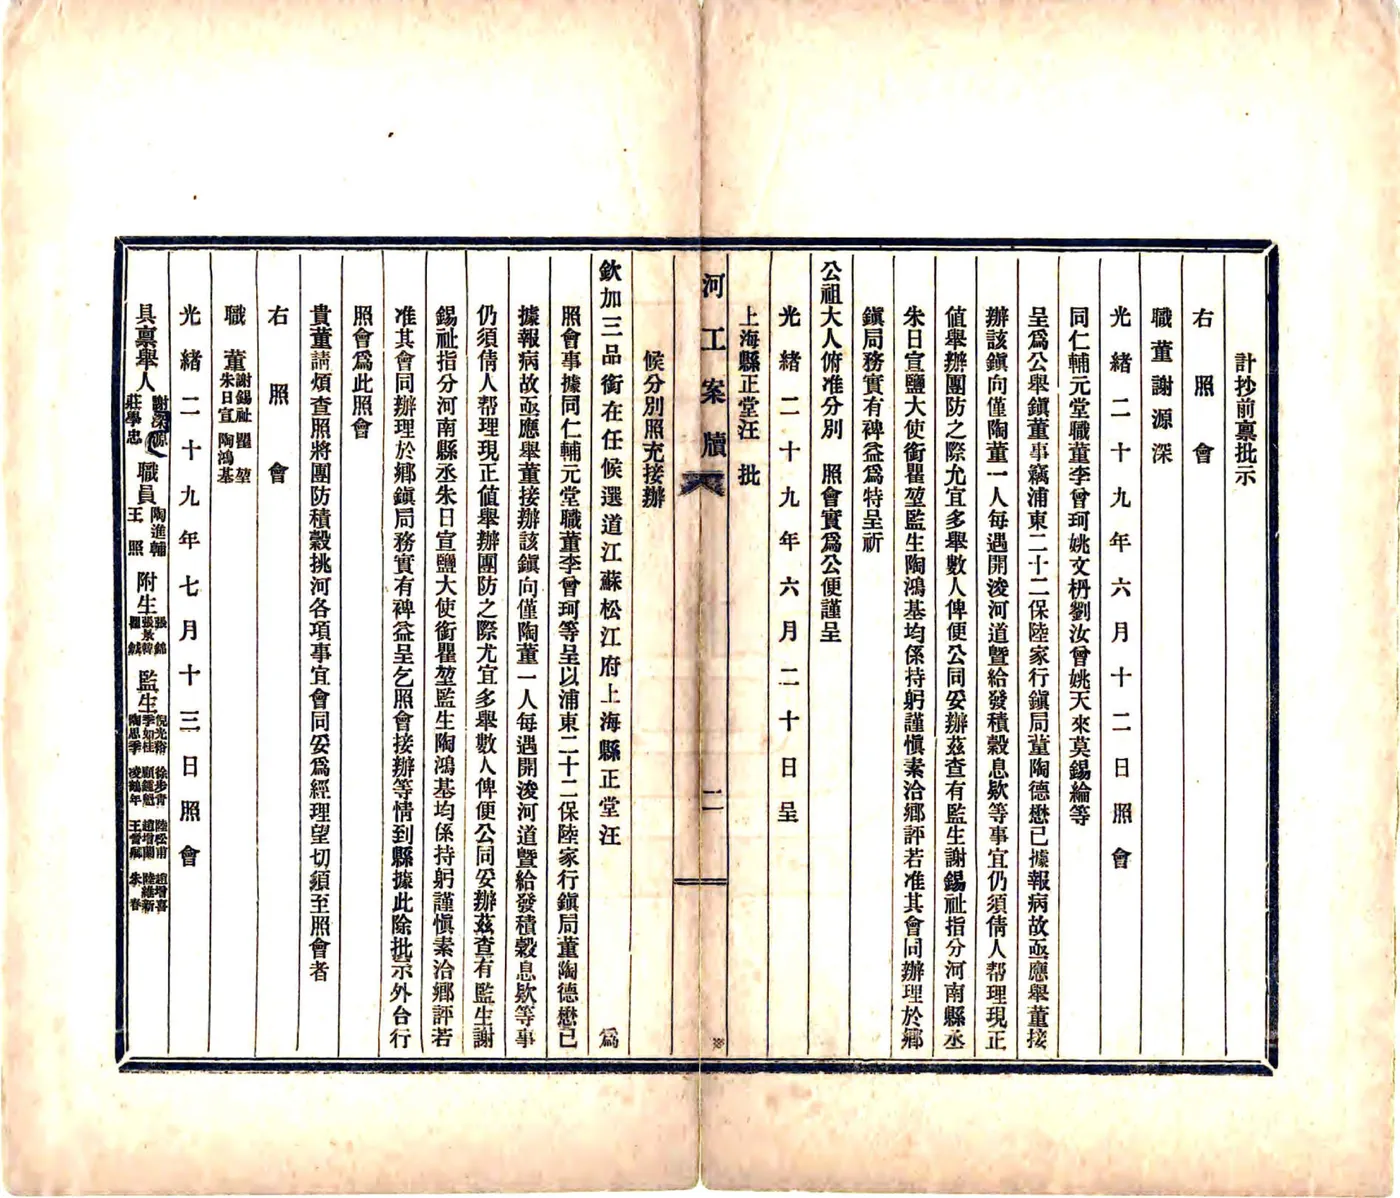 計抄前禀批示
右照會
職董謝源深
光緒二十九年六月十二日照會
同仁輔元堂職董李曾珂姚文枬劉汝曾姚天來莫錫綸等
呈爲公舉鎭董事竊浦東二十二保陸家行鎭局董陶德懋已據報病故亟應舉董接
辦該鎭向僅陶董一人每遇開浚河道曁給發積穀息欵等事宜仍須倩人帮理現正
値舉辦團防之際允宜多舉數人俾便公同妥辦茲查有監生謝錫祉指分河南縣丞
朱日宣鹽大使銜瞿堃監生陶鴻基均係持躬謹愼素洽鄉評若准其會同辦理於鄉
鎭局務實有裨益爲特呈祈
公祖大人俯准分別　照會實爲公便謹呈
光緒二十九年六月二十日呈
上海縣正堂汪　批
河工案牘　二
候分別照充接辦
欽加三品銜在任候選道江蘇松江府上海縣正堂汪　爲
照會事據同仁輔元堂職董李曾珂等呈以浦東二十二保陸家行鎭局董陶德懋已
據報病故亟應舉董接辦該鎭向僅陶董一人每遇開浚河道曁給發積穀息欵等事
仍須倩人帮理現正値舉辦團防之際尤宜多舉數人俾便公同妥辦茲查有監生謝
錫祉指分河南縣丞朱日宣鹽大使銜瞿堃監生陶鴻基均係持躬謹愼素洽鄉評若
准其會同辦理於鄉鎭局務實有裨益呈乞照會接辦等情到縣據此除批示外台行
照會爲此照會
貴董請煩查照將團防積穀挑河各項事宜會同妥爲經理望切須至照會者
右照會
職董謝錫祉　瞿堃　朱日宣　陶鴻基
光緒二十九年七月十三日照會
具禀舉人謝源深　莊學忠　職員陶進輔　王照　附生張錦　張景　瞿　監生倪光裕　季如桂　陶思季　徐步青　顧鍾　凌鶴年　陸松甫　趙增　王　趙增喜　陸維新　朱春